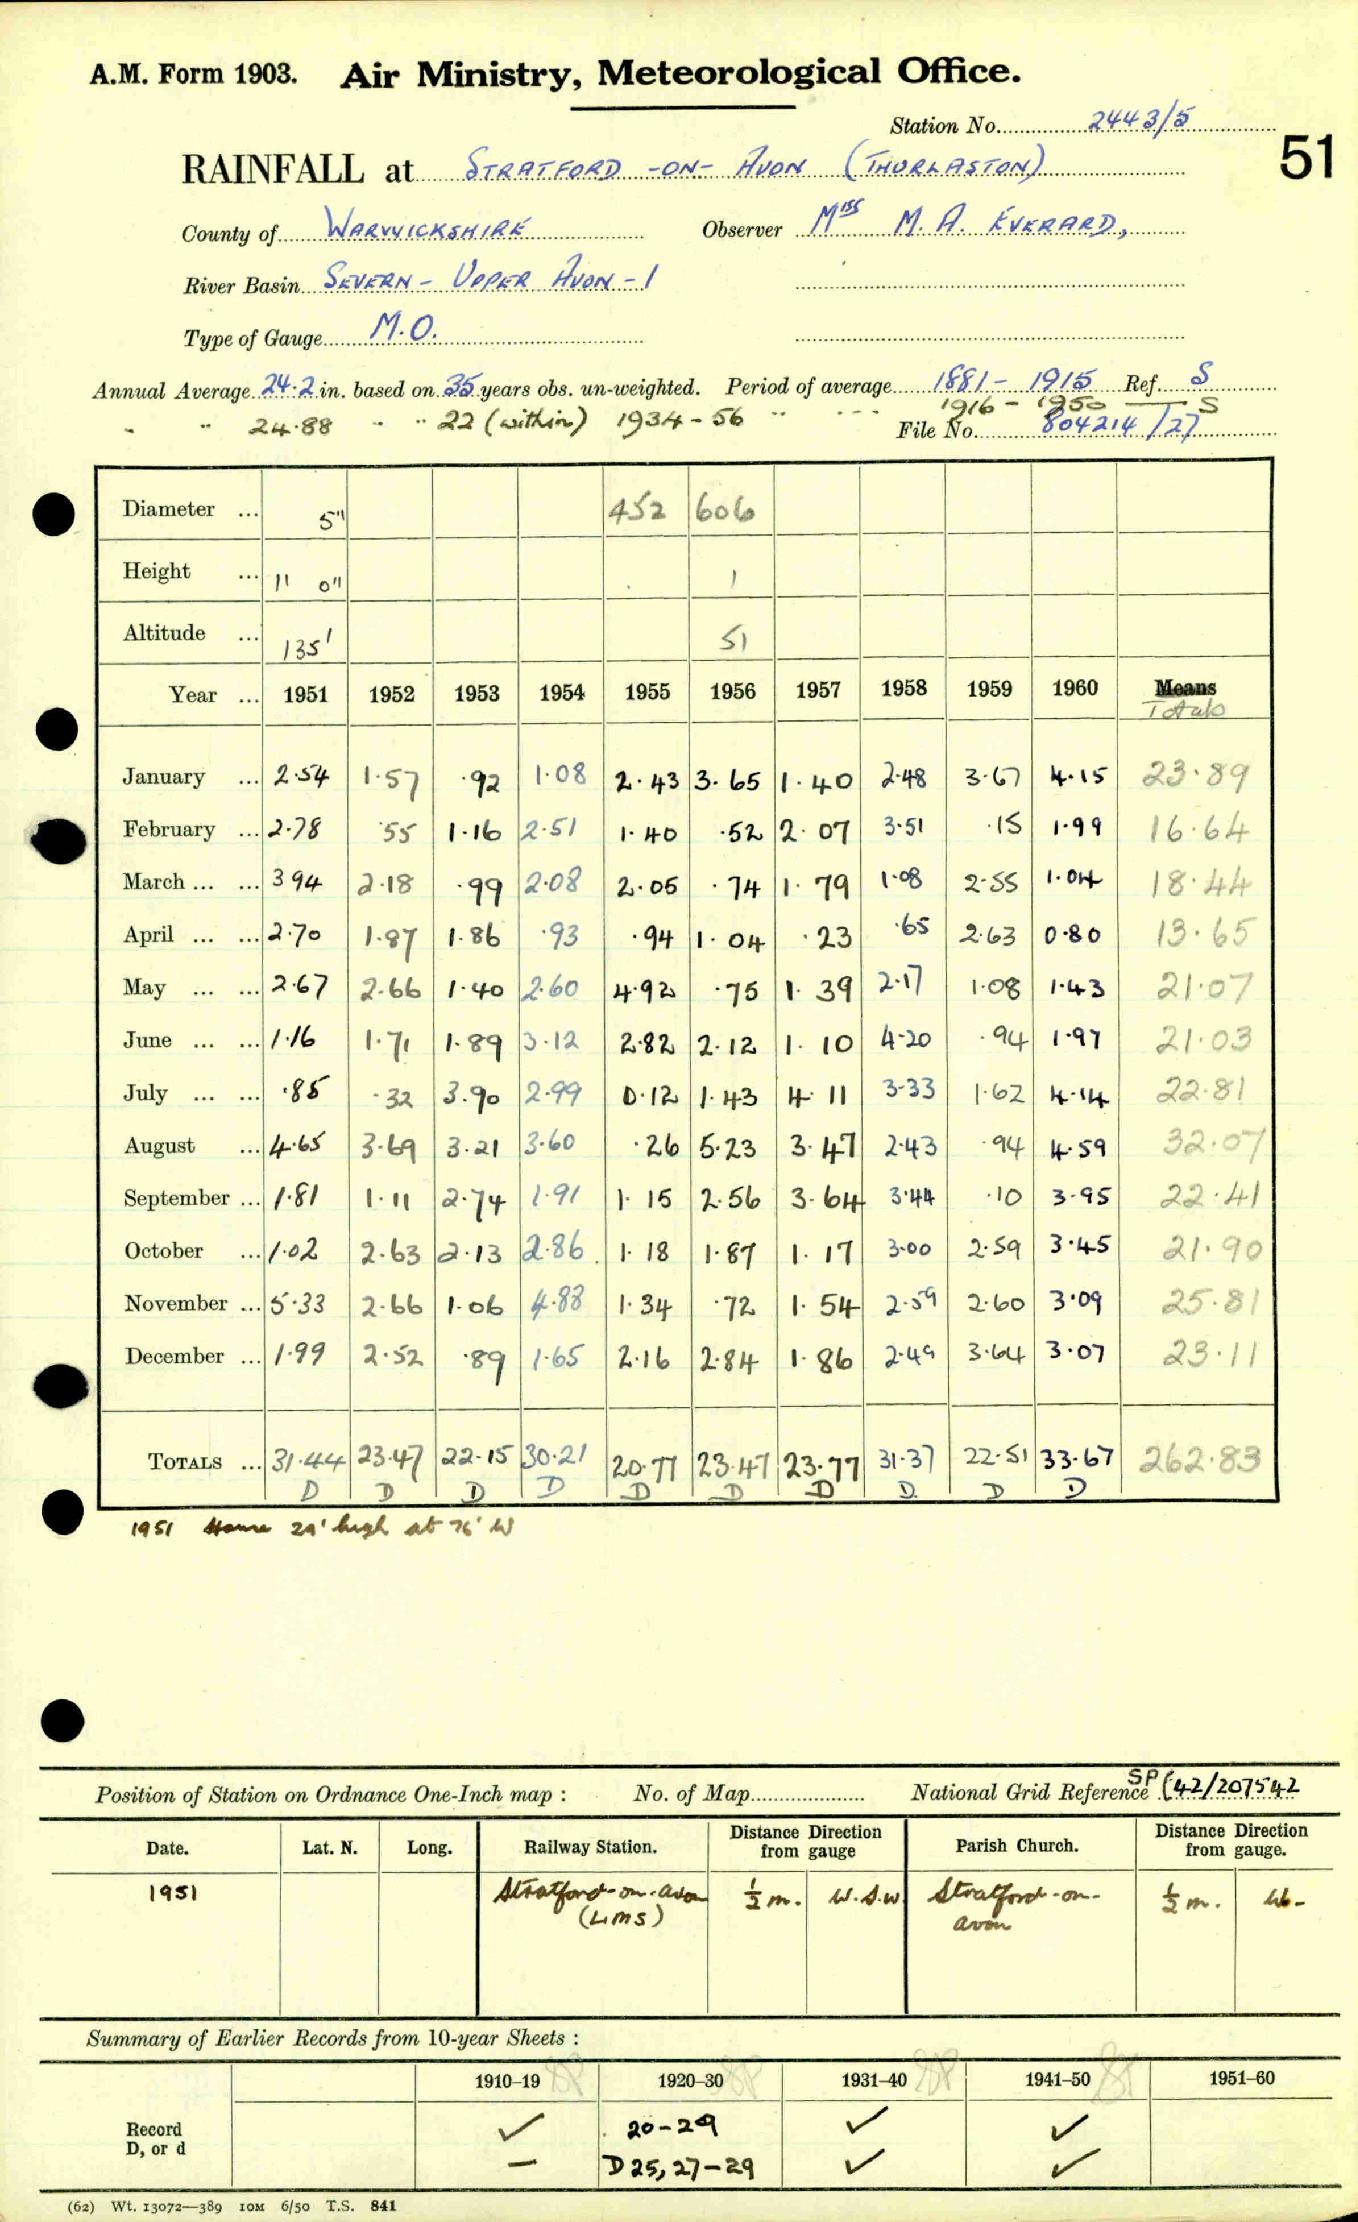 A.M. Form 1903. Air Ministry, Meteorological Office.
Station No. 2443/5
51
RAINFALL at STRATFORD -ON- AVON (THURLASTON)
County of WARWICKSHIRE Observer Miss M. A. EVERARD,
River Basin SEVERN - UPPER AVON - 1
Type of Gauge M.O.
Annual Average 24.2 in. based on 35 years obs. un-weighted. Period of average 1881 - 1915 Ref. S
" " 24.88 " " 22 (within) 1934-56 " 1916 - 1950 S
File No. 804214/27
Diameter ... 5" 452 606
Height ... 1' 0" 1
Altitude ... 135' 51
Year ... 1951 1952 1953 1954 1955 1956 1957 1958 1959 1960 Means Totals
January ... 2.54 1.57 .92 1.08 2.43 3.65 1.40 2.48 3.67 4.15 23.89
February ... 2.78 .55 1.16 2.51 1.40 .52 2.07 3.51 .15 1.99 16.64
March ... ... 3 94 2.18 .99 2.08 2.05 .74 1.79 1.08 2.55 1.04 18.44
April ... ... 2.70 1.87 1.86 .93 .94 1.04 .23 .65 2.63 0.80 13.65
May ... ... 2.67 2.66 1.40 2.60 4.92 .75 1.39 2.17 1.08 1.43 21.07
June ... ... 1.16 1.71 1.89 3.12 2.82 2.12 1.10 4.20 .94 1.97 21.03
July ... ... .85 .32 3.90 2.99 0.12 1.43 4.11 3.33 1.62 4.14 22.81
August ... 4.65 3.69 3.21 3.60 .26 5.23 3.47 2.43 .94 4.59 32.07
September ... 1.81 1.11 2.74 1.91 1.15 2.56 3.64 3.44 .10 3.95 22.41
October ... 1.02 2.63 2.13 2.86 1.18 1.87 1.17 3.00 2.59 3.45 21.90
November ... 5.33 2.66 1.06 4.88 1.34 .72 1.54 2.59 2.60 3.09 25.81
December ... 1.99 2.52 .89 1.65 2.16 2.84 1.86 2.49 3.64 3.07 23.11
TOTALS ... 31.44 23.47 22.15 30.21 20.77 23.47 23.77 31.37 22.51 33.67 262.83
D D D D D D D D. D D
1951 House 29' high at 76' W
Position of Station on Ordnance One-Inch map : No. of Map National Grid Reference SP (42/207542
Date. Lat. N. Long. Railway Station. Distance Direction from gauge Parish Church. Distance Direction from gauge.
1951 Stratford-on-avon (LMS) ½ m. W.S.W Stratford-on-avon ½ m. W.
Summary of Earlier Records from 10-year Sheets :
1910–19 1920–30 1931–40 1941–50 1951–60
Record ✓ 20-29 ✓ ✓
D, or d – D 25, 27-29 ✓ ✓
(62) Wt. 13072—389 10M 6/50 T.S. 841